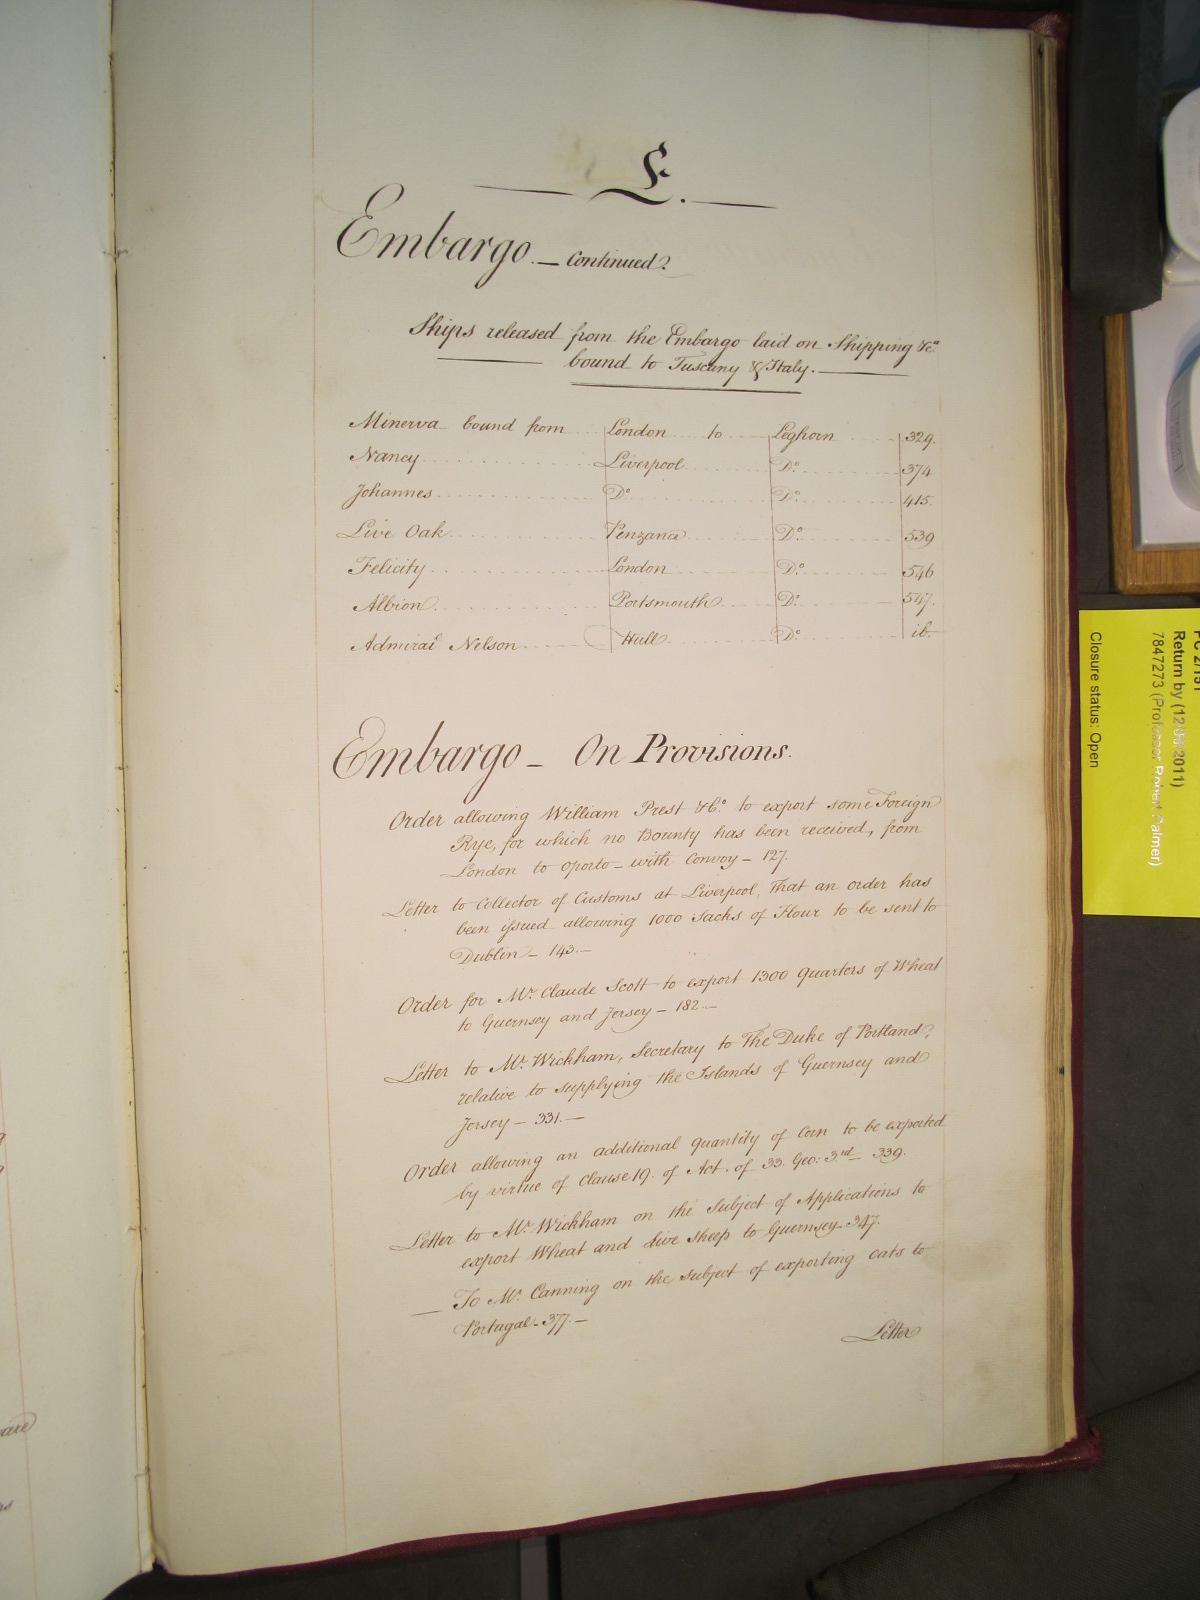 E.
Embargo. — Continued.
Ships released from the Embargo laid on Shipping &c.
bound to Tuscany & Italy.
Minerva bound from London to Leghorn 329.
Nancy Liverpool Do. 374
Johannes Do. Do. 415.
Live Oak Penzance Do. 539
Felicity London Do. 546
Albion Portsmouth Do. 547.
Admiral Nelson Hull Do. ib.
Embargo — On Provisions.
Order allowing William Prest &Co. to export some Foreign
Rye, for which no Bounty has been received, from
London to Oporto — with Convoy — 127.
Letter to Collector of Customs at Liverpool, That an order has
been issued allowing 1000 Sacks of Flour to be sent to
Dublin — 143. —
Order for Mr. Claude Scott to export 1300 Quarters of Wheat
to Guernsey and Jersey — 182 —
Letter to Mr. Wickham, Secretary to The Duke of Portland,
relative to supplying the Islands of Guernsey and
Jersey — 331. —
Order allowing an additional quantity of Corn to be exported
by virtue of Clause 19. of Act. of 33. Geo: 3rd — 339.
Letter to Mr. Wickham on the Subject of Applications to
export Wheat and live sheep to Guernsey — 347.
— To Mr. Canning on the subject of exporting oats to
Portugal — 377. —
Letter
PC 2/151
Return by (12/08/2011)
7847273 (Professor Robert Palmer)
Closure status: Open